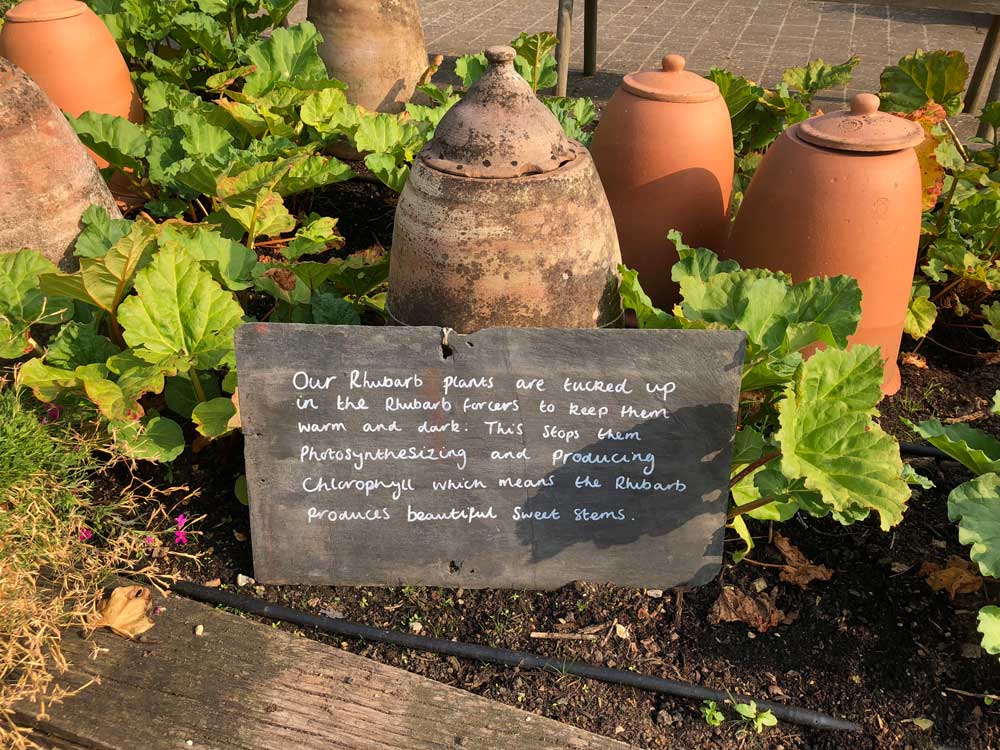 Our Rhubarb plants are tucked up
in the Rhubarb forcers to keep them
warm and dark. This stops them
Photosynthesizing and producing
Chlorophyll which means the Rhubarb
produces beautiful sweet stems.